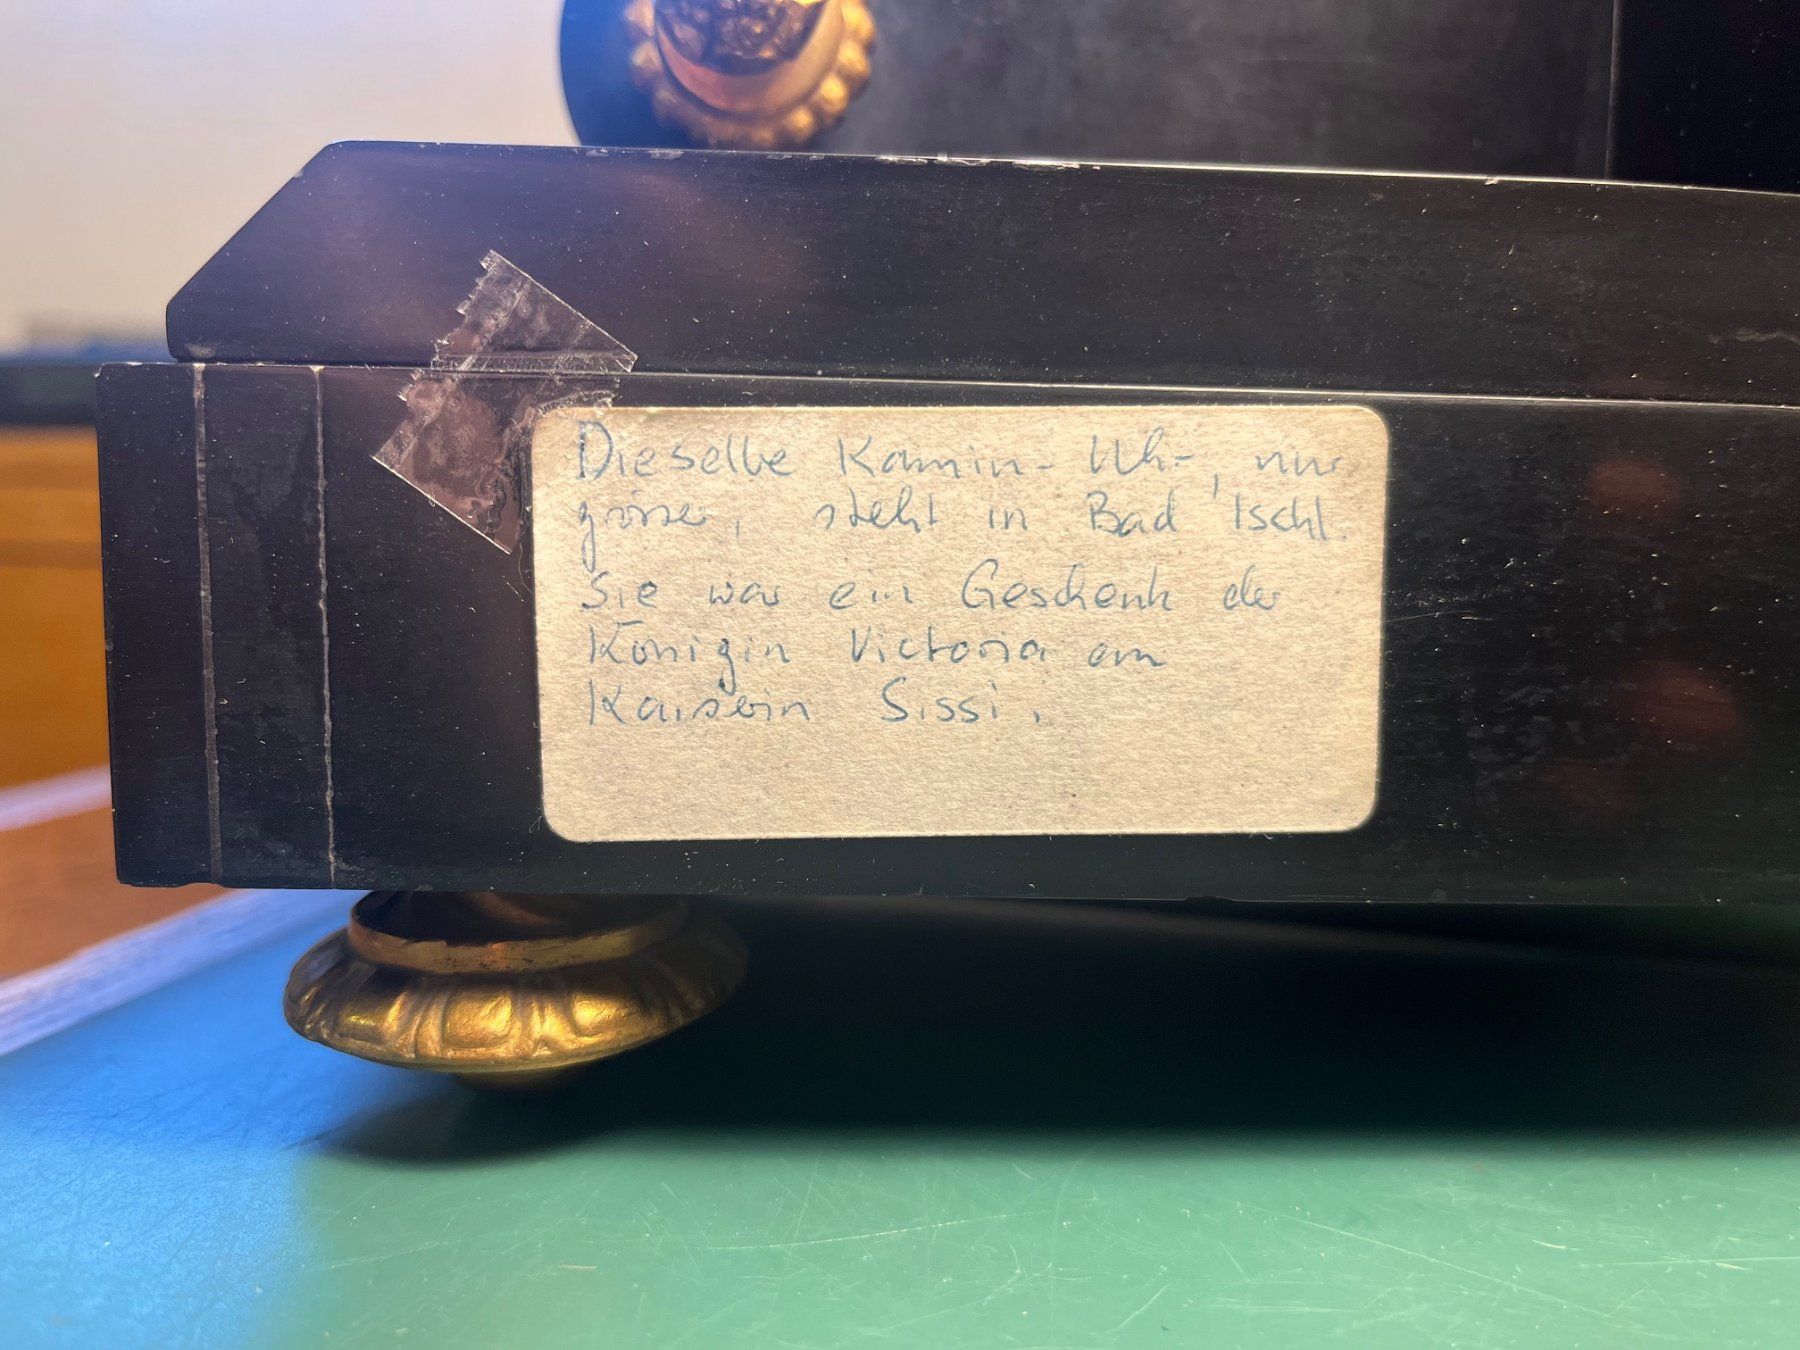 Dieselbe Kamin-Uhr, nur
grösser, steht in Bad Ischl.
Sie war ein Geschenk der
Königin Victoria an
Kaiserin Sissi.